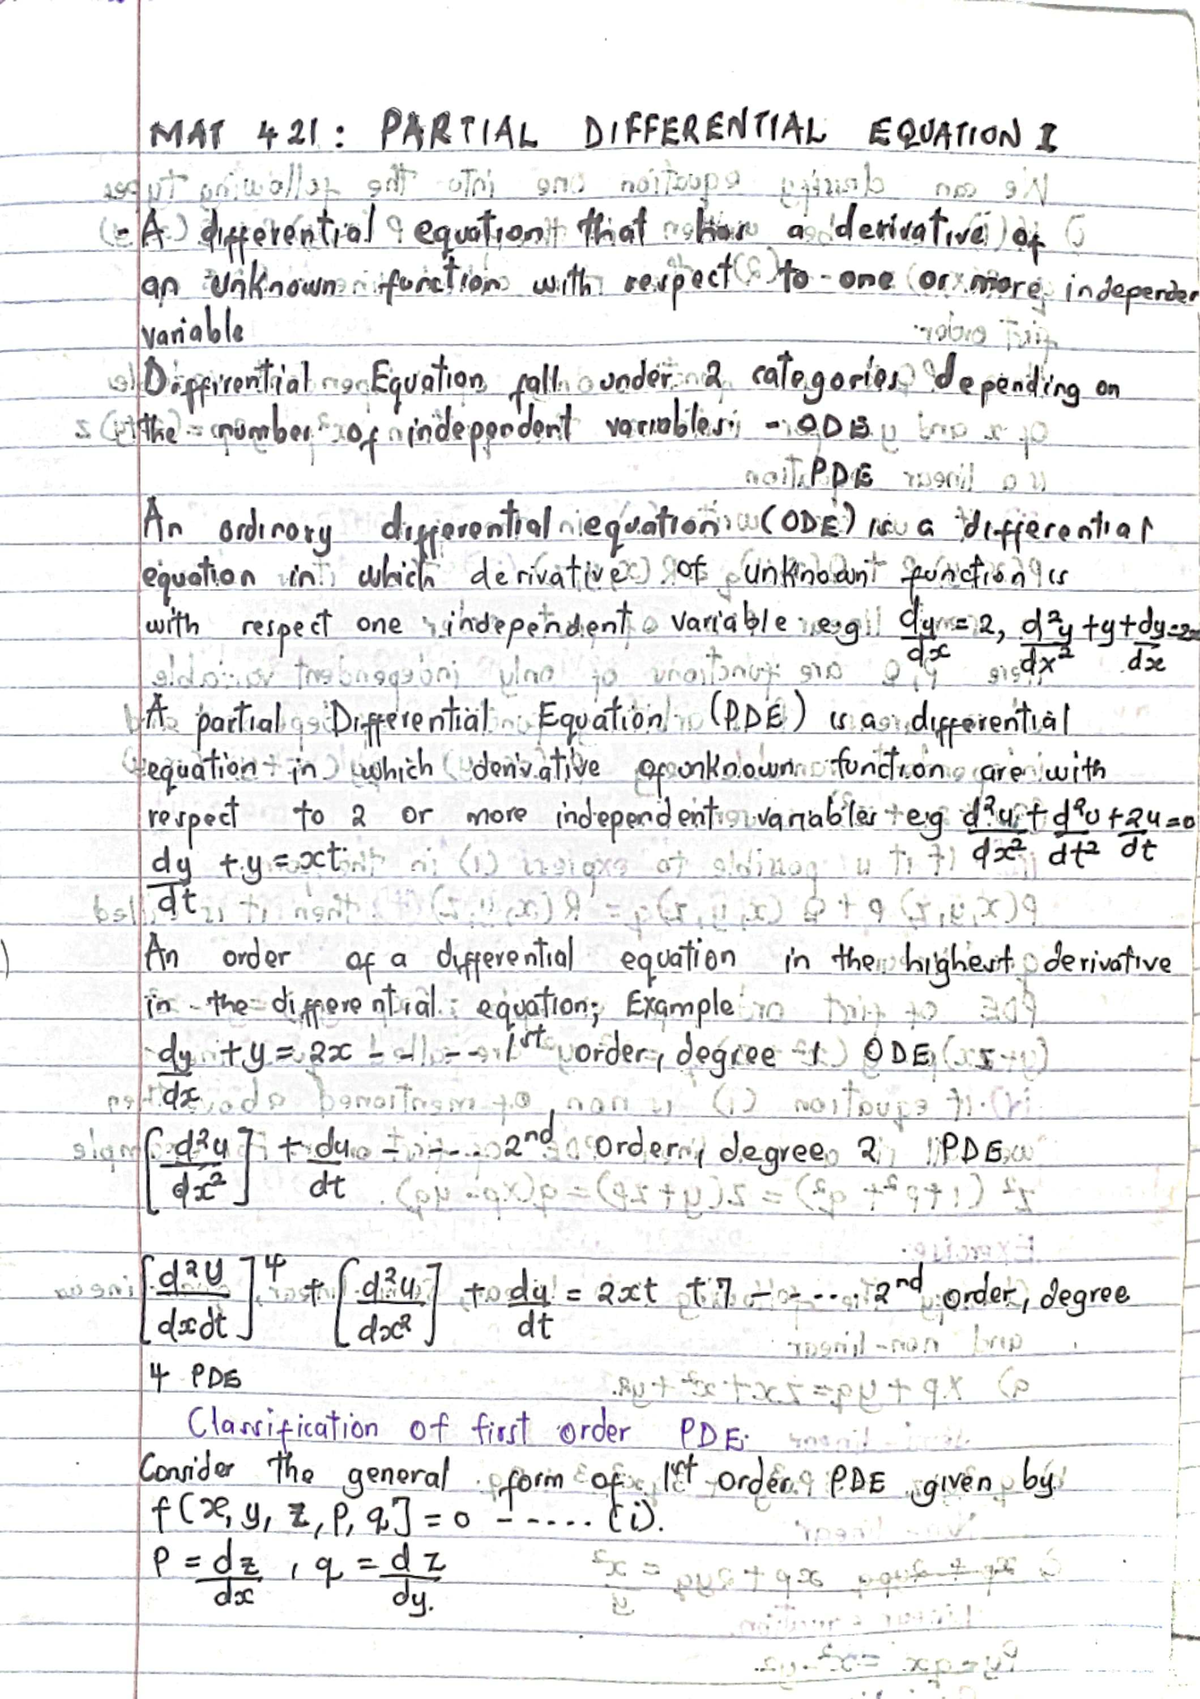 MAT 421: PARTIAL DIFFERENTIAL EQUATION I
A differential equation that has a derivative of
an unknown function with respect to one or more independen
variable
Diffirential Equation fall under 2 categories depending on
the number of independent variables: - ODE
PDE
An ordinary differential equation (ODE) is a differential
equation in which derivative of unknown function is
with respect one independent variable e.g dy/dx = 2, d²y/dx² + y + dy/dx = 2
A partial Differential Equation (PDE) is a differential
equation in which derivative of unknown function are with
respect to 2 or more independent variables e.g d²u/dx² + d²u/dt² + 2u/dt = 0
dy/dt + y = xt
An order of a differential equation in the highest derivative
in the differential equation; Example
dy/dx + y = 2x - - - - 1st order, degree 1 ODE
[d²u/dx²] + du/dt - - ... 2nd order, degree 2 PDE
[d²y/dxdt]⁴ + [d²u/dx²] + du/dt = 2xt + 7 - - ... 2nd order, degree
4 PDE
Classification of first order PDE.
Consider the general form of 1st order PDE given by
f[x, y, z, p, q] = 0 - - .... (i).
P = dz/dx , q = dz/dy.